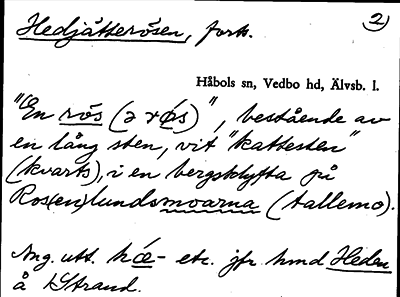 Hedjätterösen, forts.
2)
Håbols sn, Vedbo hd, Älvsb. l.
"En rös (ə rø̄s)", bestående av
en lång sten, vit "kattesten"
(kvarts), i en bergsklyfta på
Ros(en)lundsmoarna (tallemo).
Ang. utt. hœ- etc. jfr hmd Heden
å Strand.